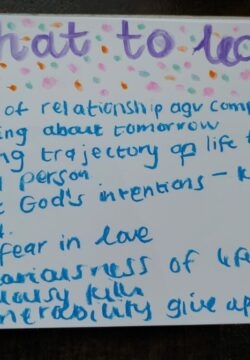 hat to
of relationship agv comp
ing about tomorrow
ng trajectory of life t
person
God's intentions - k
fear in love
ariousness of life
ousy kills
nerability give up